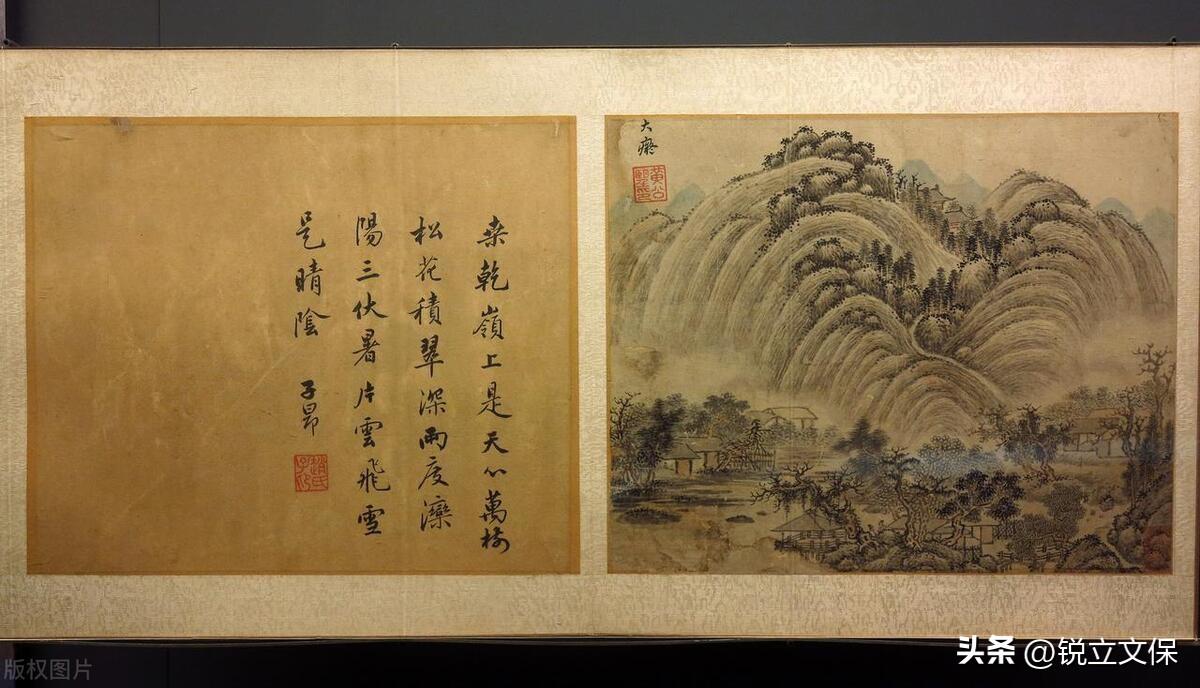 大癡
黃公
桒乾嶺上是天心萬樹
松花積翠深兩度灤
陽三伏暑片雲飛雪
是晴陰 子昂
趙氏子
头条 @锐立文保
版权图片